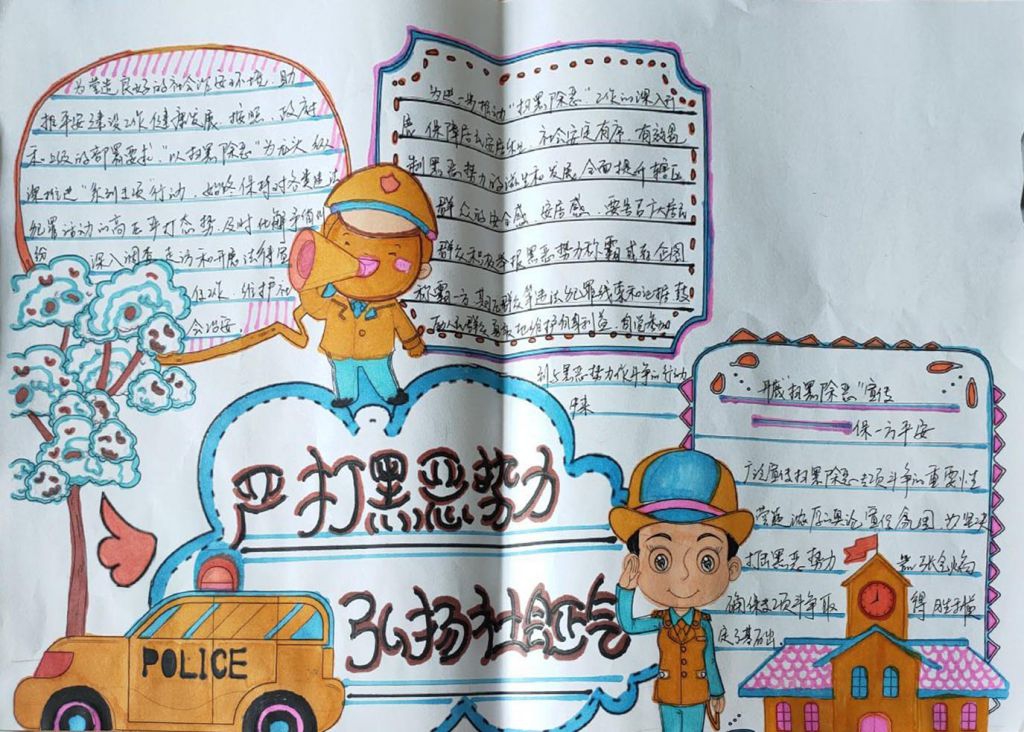 为营造良好的社会治安环境，助
推平安建设工作健康发展，按照，政府
和上级的部署要求，"以扫黑除恶"为主次 纵
深推进"系列主项"行动，始终保持对各类违法
犯罪活动的高压严打态势，及时化解矛盾纠
纷 深入调查 走访和开展法律宣
任作 维护社
会治安。
为进一步推动"扫黑除恶"工作的深入开
展，保障居民安居乐业，社会安定有序，有效遏
制黑恶势力的滋生和发展，全面提升辖区
群众的安全感，安居感，要告百广大居民
群众积极举报黑恶势力称霸或在企图
称霸一方，期压群众等违法犯罪线索和证据，鼓
励人民群众真实地维护自身利益，自觉参加
到与黑恶势力作斗争的行动
中来
严打黑恶势力
弘扬社会正气
POLICE
开展"扫黑除恶"宣传
保一方平安
广泛宣传扫黑除恶专项斗争的重要性
营造浓厚的舆论宣传氛围，为坚决
打击黑恶势力 嚣张气焰
确保专项斗争取 得胜利奠
定了基础。